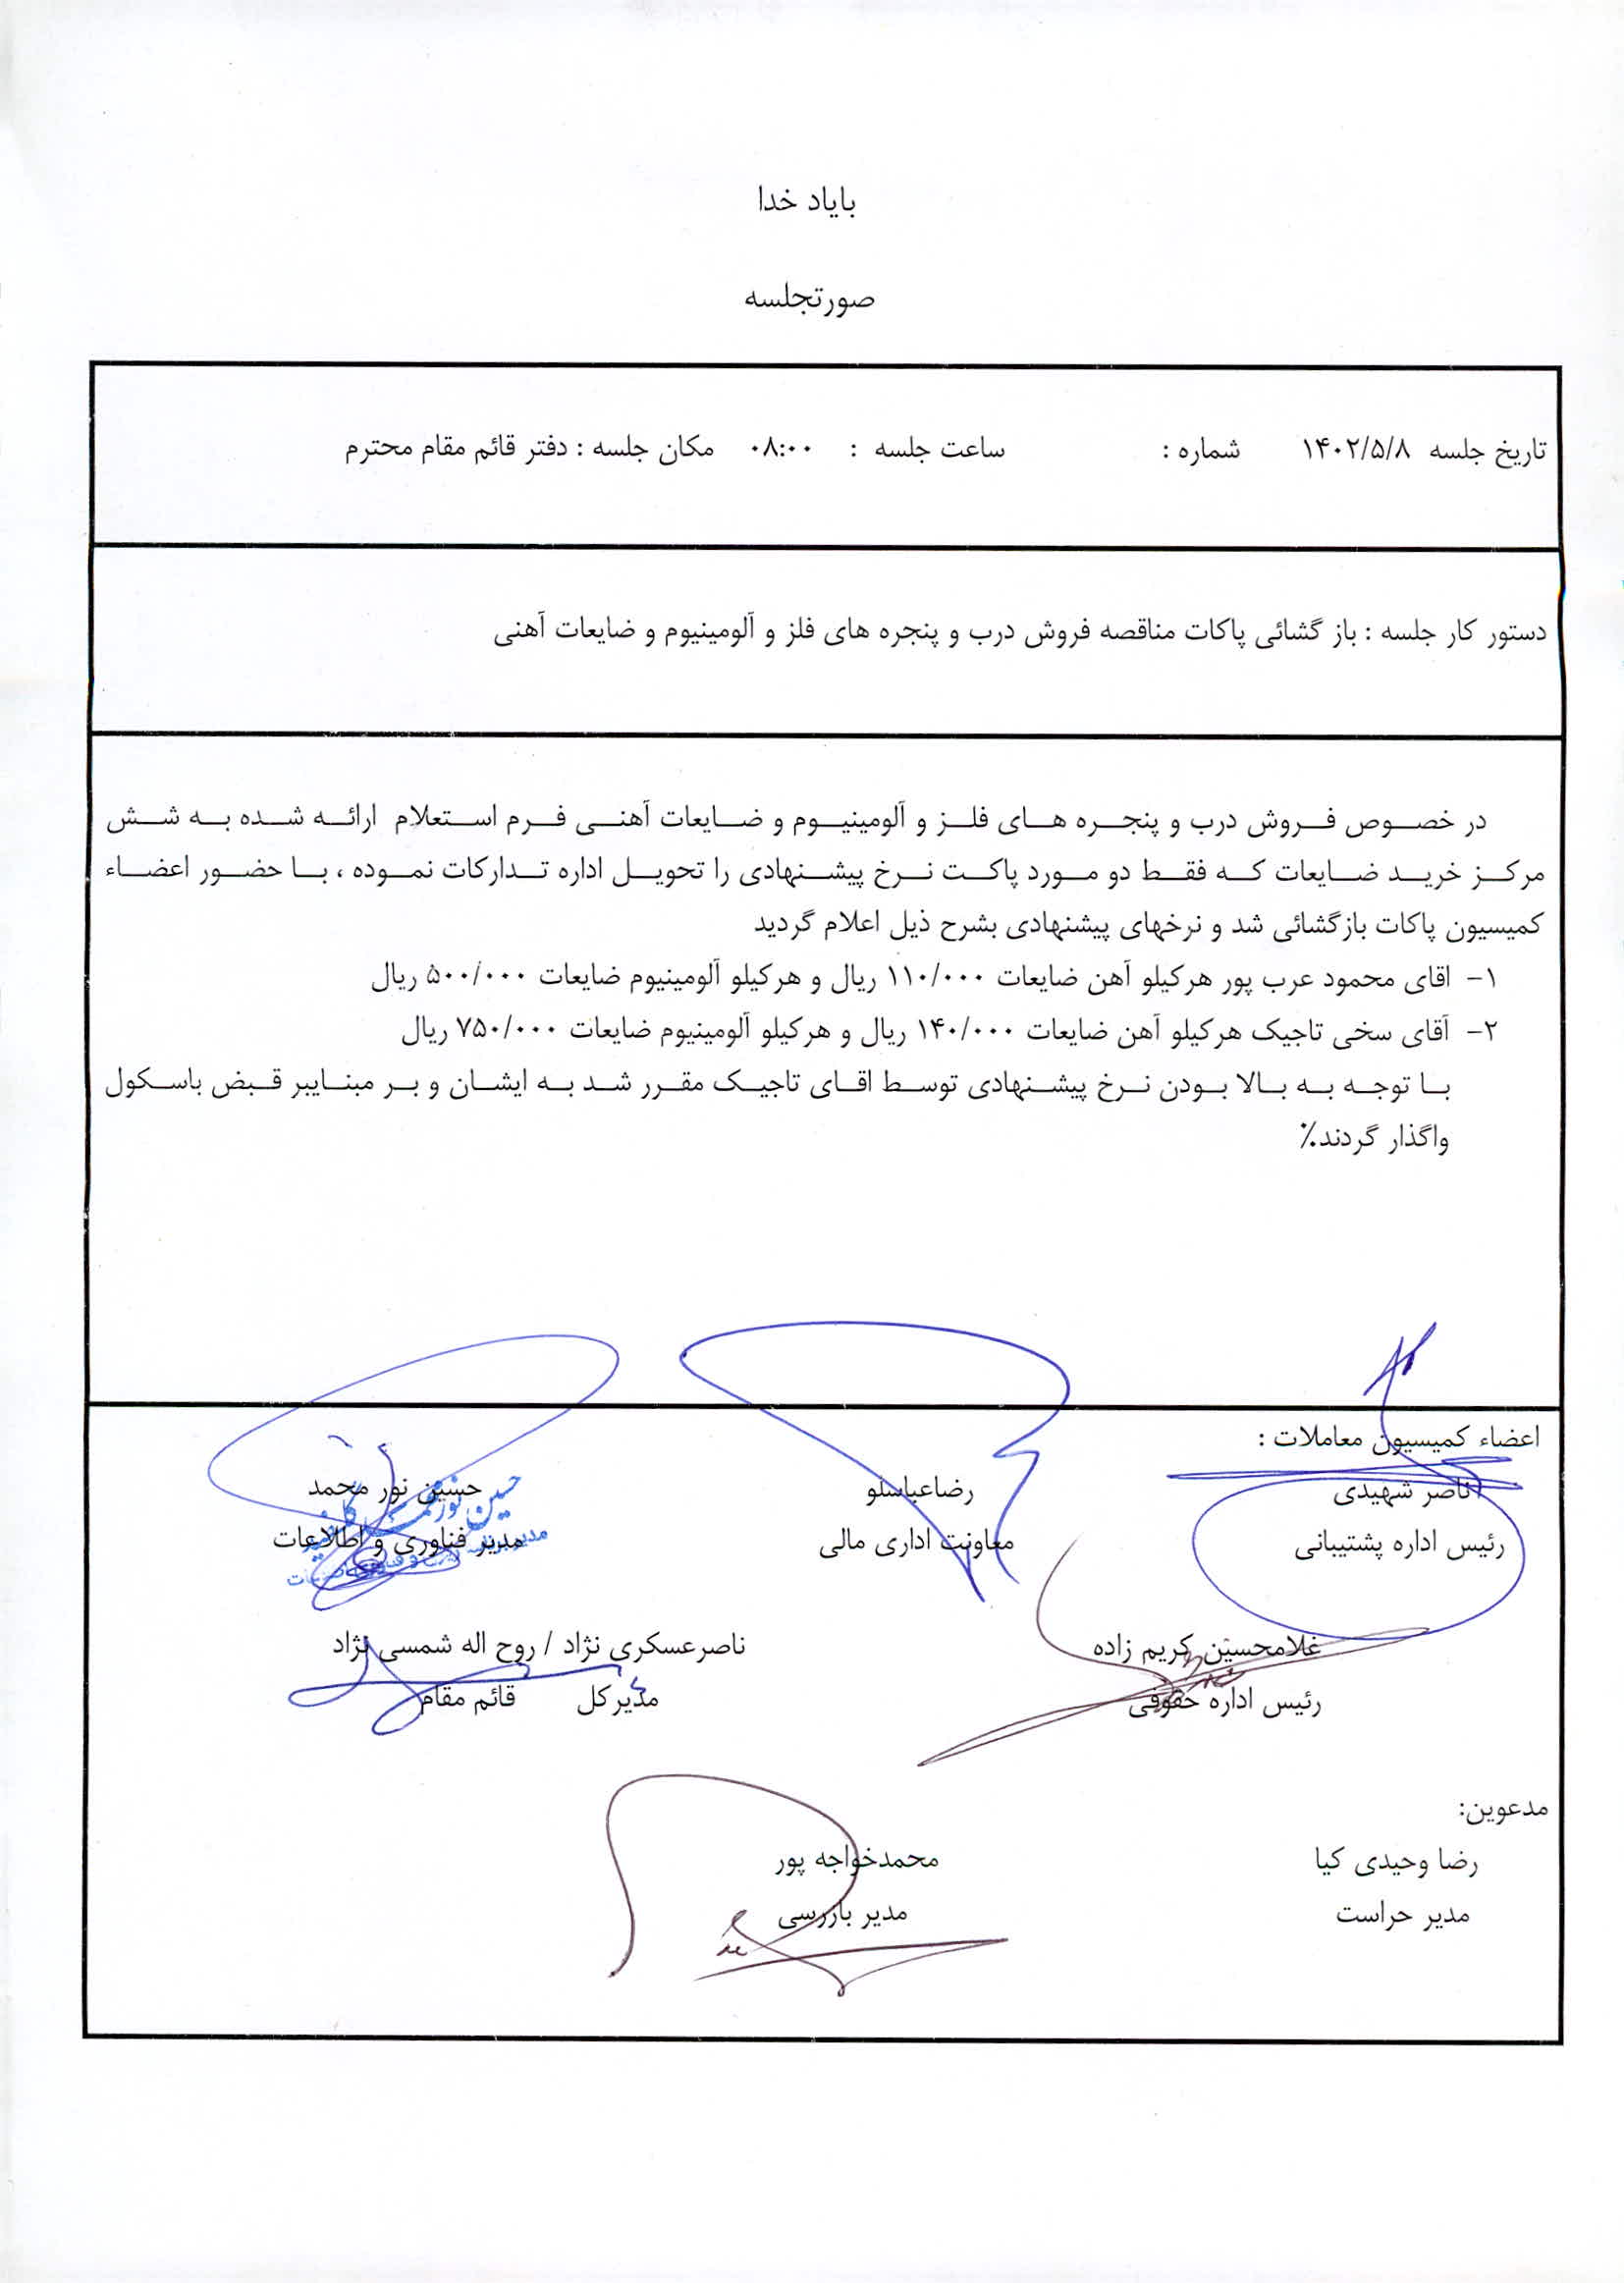 بایاد خدا
صورتجلسه
تاریخ جلسه ۱۴۰۲/۵/۸ شماره : ساعت جلسه : ۰۸:۰۰ مکان جلسه : دفتر قائم مقام محترم
دستور کار جلسه : باز گشائی پاکات مناقصه فروش درب و پنجره های فلز و آلومینیوم و ضایعات آهنی
در خصوص فروش درب و پنجره های فلز و آلومینیوم و ضایعات آهنی فرم استعلام ارائه شده به شش
مرکز خرید ضایعات که فقط دو مورد پاکت نرخ پیشنهادی را تحویل اداره تدارکات نموده ، با حضور اعضاء
کمیسیون پاکات بازگشائی شد و نرخهای پیشنهادی بشرح ذیل اعلام گردید
۱- اقای محمود عرب پور هرکیلو آهن ضایعات ۱۱۰/۰۰۰ ریال و هرکیلو آلومینیوم ضایعات ۵۰۰/۰۰۰ ریال
۲- آقای سخی تاجیک هرکیلو آهن ضایعات ۱۴۰/۰۰۰ ریال و هرکیلو آلومینیوم ضایعات ۷۵۰/۰۰۰ ریال
با توجه به بالا بودن نرخ پیشنهادی توسط اقای تاجیک مقرر شد به ایشان و بر مبنایبر قبض باسکول
واگذار گردند٪
اعضاء کمیسیون معاملات :
ناصر شهیدی رضاعباسلو حسین نور محمد
رئیس اداره پشتیبانی معاونت اداری مالی مدیر فناوری و اطلاعات
غلامحسین کریم زاده ناصرعسکری نژاد / روح اله شمسی نژاد
رئیس اداره حقوقی مدیرکل قائم مقام
مدعوین:
رضا وحیدی کیا محمدخواجه پور
مدیر حراست مدیر بازرسی